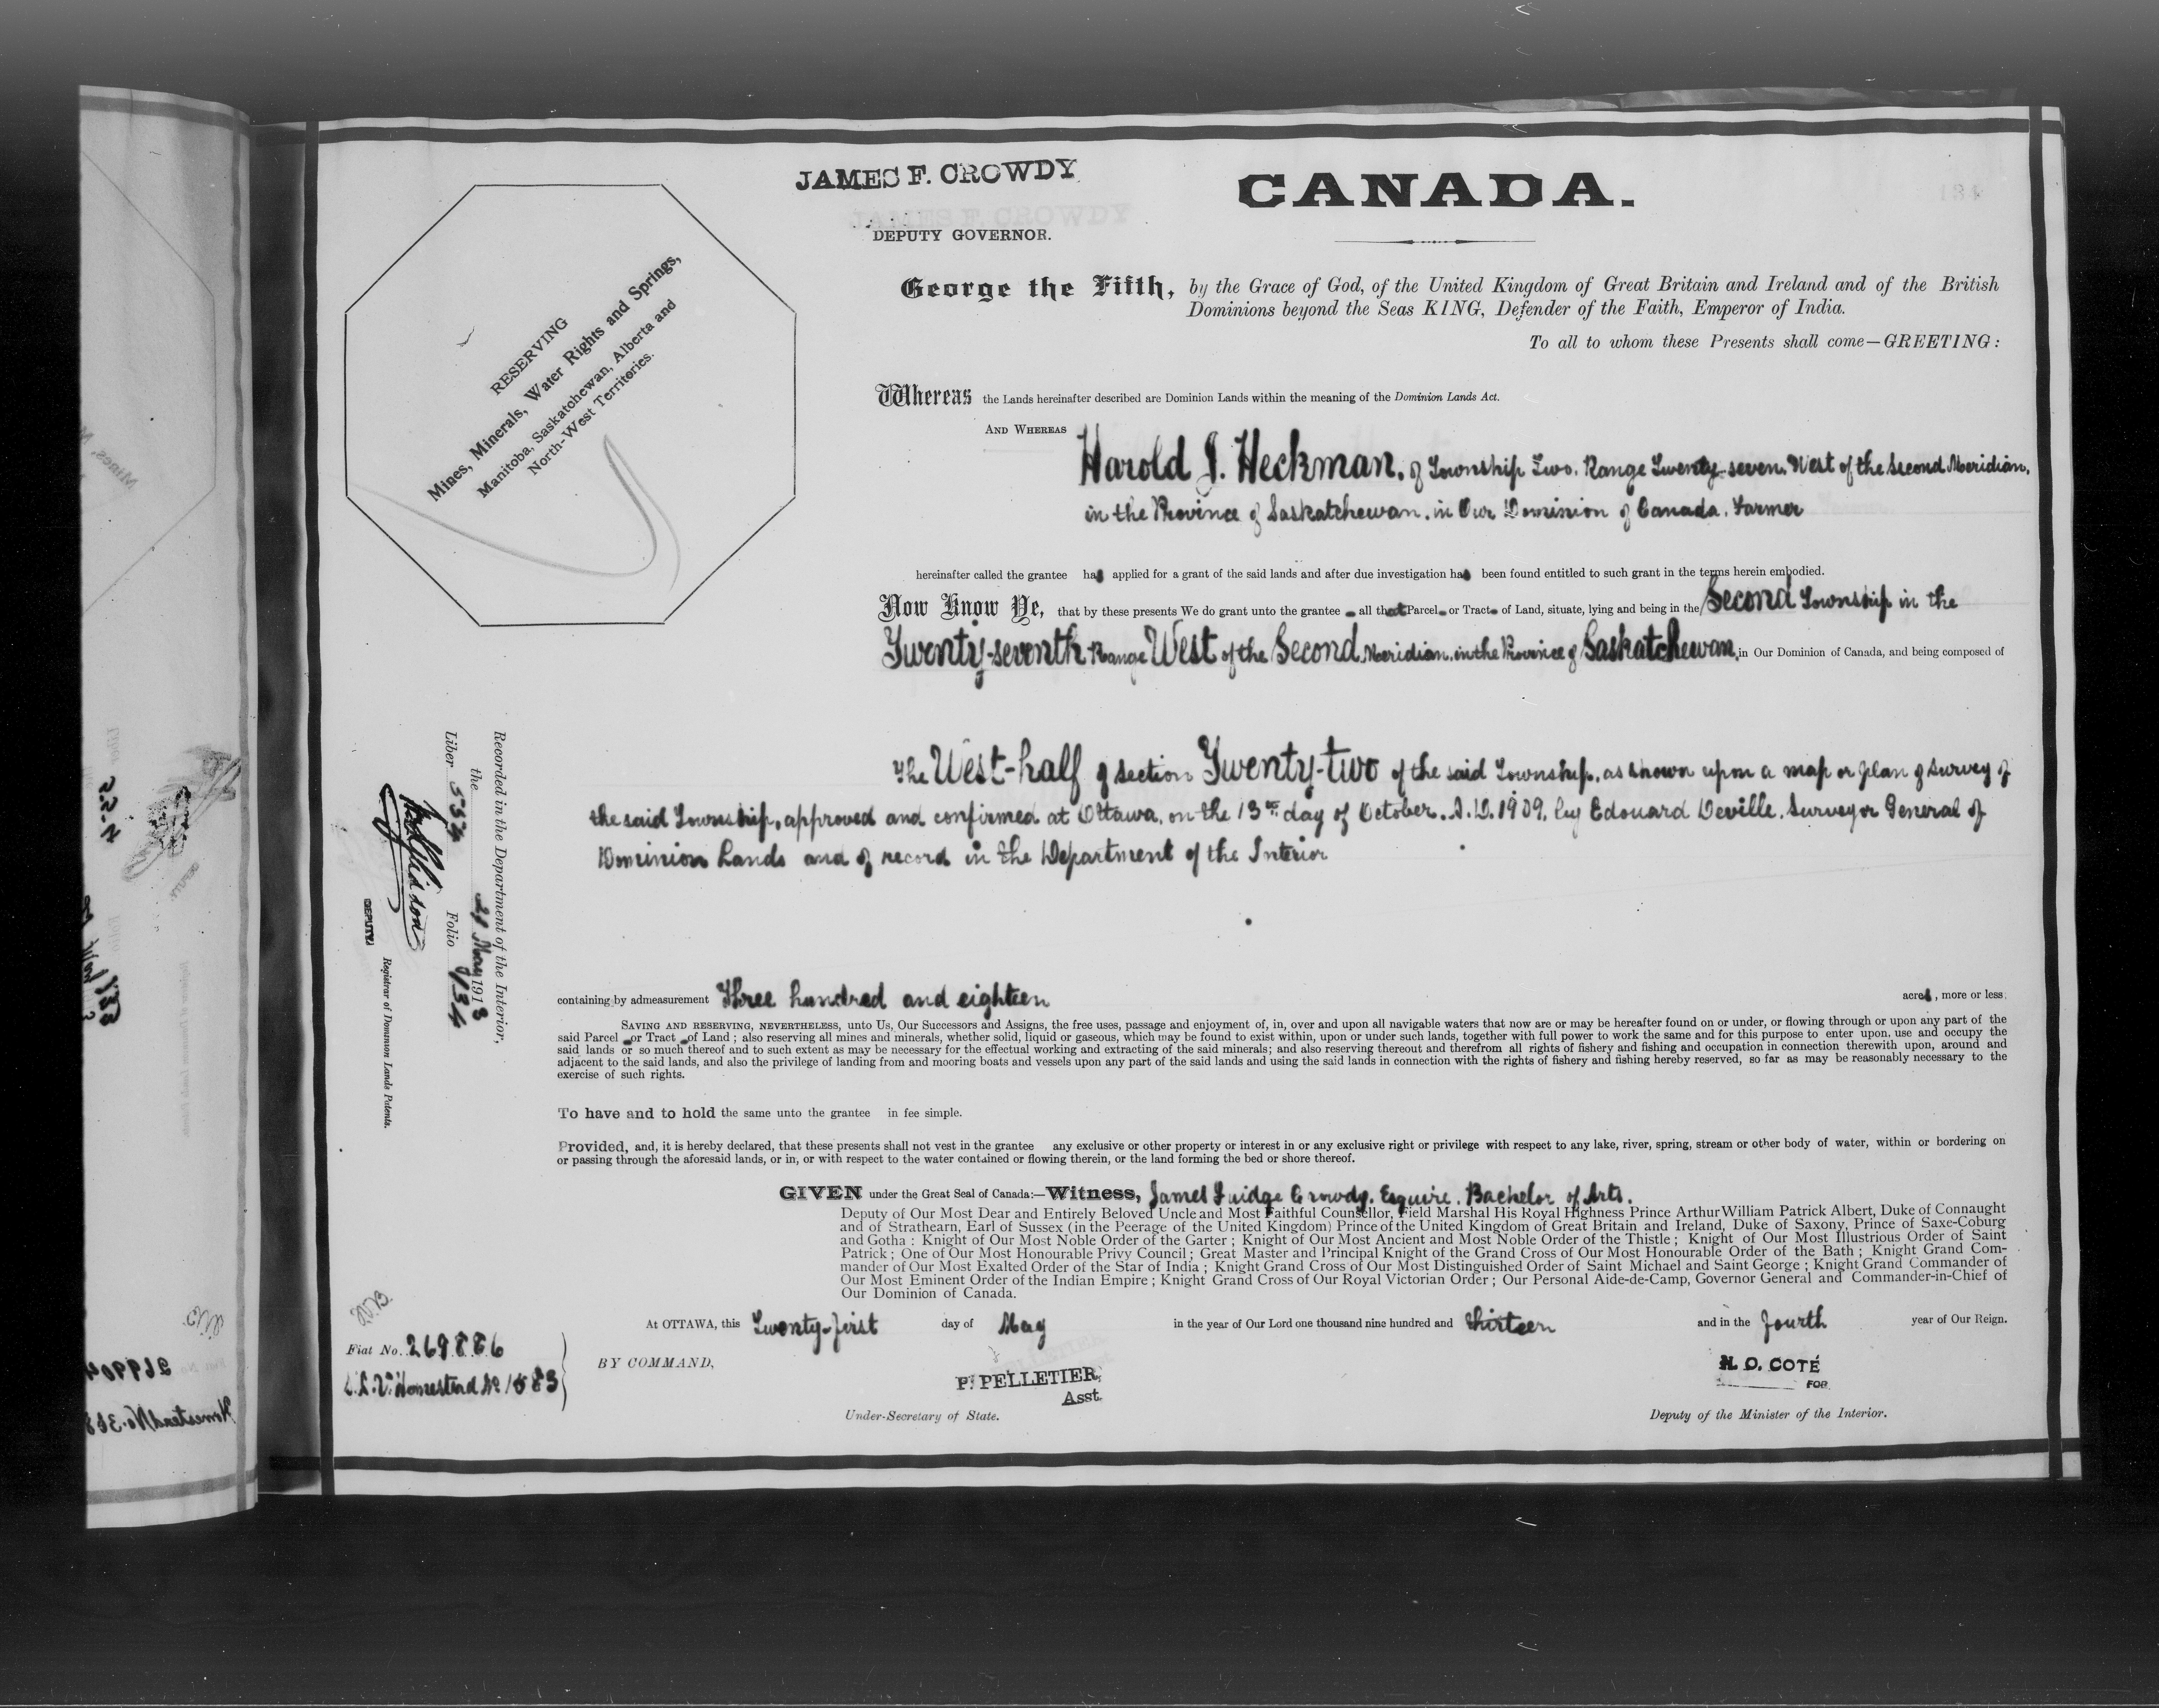 JAMES F. CROWDY
DEPUTY GOVERNOR.
CANADA.
RESERVING
Mines, Minerals, Water Rights and Springs,
Manitoba, Saskatchewan, Alberta and
North-West Territories.
George the Fifth, by the Grace of God, of the United Kingdom of Great Britain and Ireland and of the British
Dominions beyond the Seas KING, Defender of the Faith, Emperor of India.
To all to whom these Presents shall come—GREETING:
Whereas the Lands hereinafter described are Dominion Lands within the meaning of the Dominion Lands Act.
AND WHEREAS
Harold J. Heckman, of Township Two, Range Twenty-seven, West of the Second Meridian,
in the Province of Saskatchewan, in Our Dominion of Canada, Farmer
hereinafter called the grantee has applied for a grant of the said lands and after due investigation has been found entitled to such grant in the terms herein embodied.
Now Know Ye, that by these presents We do grant unto the grantee all that Parcel or Tract of Land, situate, lying and being in the Second Township in the
Twenty-seventh Range West of the Second Meridian, in the Province of Saskatchewan, in Our Dominion of Canada, and being composed of
The West-half of section Twenty-two of the said Township, as shown upon a map or plan of survey of
the said Township, approved and confirmed at Ottawa, on the 13th day of October, A.D. 1909, by Edouard Deville, Surveyor General of
Dominion Lands and of record in the Department of the Interior
containing by admeasurement Three hundred and eighteen acres, more or less.
SAVING AND RESERVING, NEVERTHELESS, unto Us, Our Successors and Assigns, the free uses, passage and enjoyment of, in, over and upon all navigable waters that now are or may be hereafter found on or under, or flowing through or upon any part of the
said Parcel or Tract of Land; also reserving all mines and minerals, whether solid, liquid or gaseous, which may be found to exist within, upon or under such lands, together with full power to work the same and for this purpose to enter upon, use and occupy the
said lands or so much thereof and to such extent as may be necessary for the effectual working and extracting of the said minerals; and also reserving thereout and therefrom all rights of fishery and fishing and occupation in connection therewith upon, around and
adjacent to the said lands, and also the privilege of landing from and mooring boats and vessels upon any part of the said lands and using the said lands in connection with the rights of fishery and fishing hereby reserved, so far as may be reasonably necessary to the
exercise of such rights.
To have and to hold the same unto the grantee in fee simple.
Provided, and, it is hereby declared, that these presents shall not vest in the grantee any exclusive or other property or interest in or any exclusive right or privilege with respect to any lake, river, spring, stream or other body of water, within or bordering on
or passing through the aforesaid lands, or in, or with respect to the water contained or flowing therein, or the land forming the bed or shore thereof.
GIVEN under the Great Seal of Canada:—Witness, James Fuidge Crowdy, Esquire, Bachelor of Arts,
Deputy of Our Most Dear and Entirely Beloved Uncle and Most Faithful Counsellor, Field Marshal His Royal Highness Prince Arthur William Patrick Albert, Duke of Connaught
and of Strathearn, Earl of Sussex (in the Peerage of the United Kingdom) Prince of the United Kingdom of Great Britain and Ireland, Duke of Saxony, Prince of Saxe-Coburg
and Gotha: Knight of Our Most Noble Order of the Garter; Knight of Our Most Ancient and Most Noble Order of the Thistle; Knight of Our Most Illustrious Order of Saint
Patrick; One of Our Most Honourable Privy Council; Great Master and Principal Knight of the Grand Cross of Our Most Honourable Order of the Bath; Knight Grand Com-
mander of Our Most Exalted Order of the Star of India; Knight Grand Cross of Our Most Distinguished Order of Saint Michael and Saint George; Knight Grand Commander of
Our Most Eminent Order of the Indian Empire; Knight Grand Cross of Our Royal Victorian Order; Our Personal Aide-de-Camp, Governor General and Commander-in-Chief of
Our Dominion of Canada.
At OTTAWA, this Twenty-first day of May in the year of Our Lord one thousand nine hundred and thirteen and in the fourth year of Our Reign.
BY COMMAND,
P. PELLETIER,
Asst.
Under-Secretary of State.
N. O. COTÉ
FOR
Deputy of the Minister of the Interior.
Recorded in the Department of the Interior,
the 21 May 1913
Liber 534 Folio 134
DEPUTY
Registrar of Dominion Lands Patents.
Fiat No. 269886
Homestead No